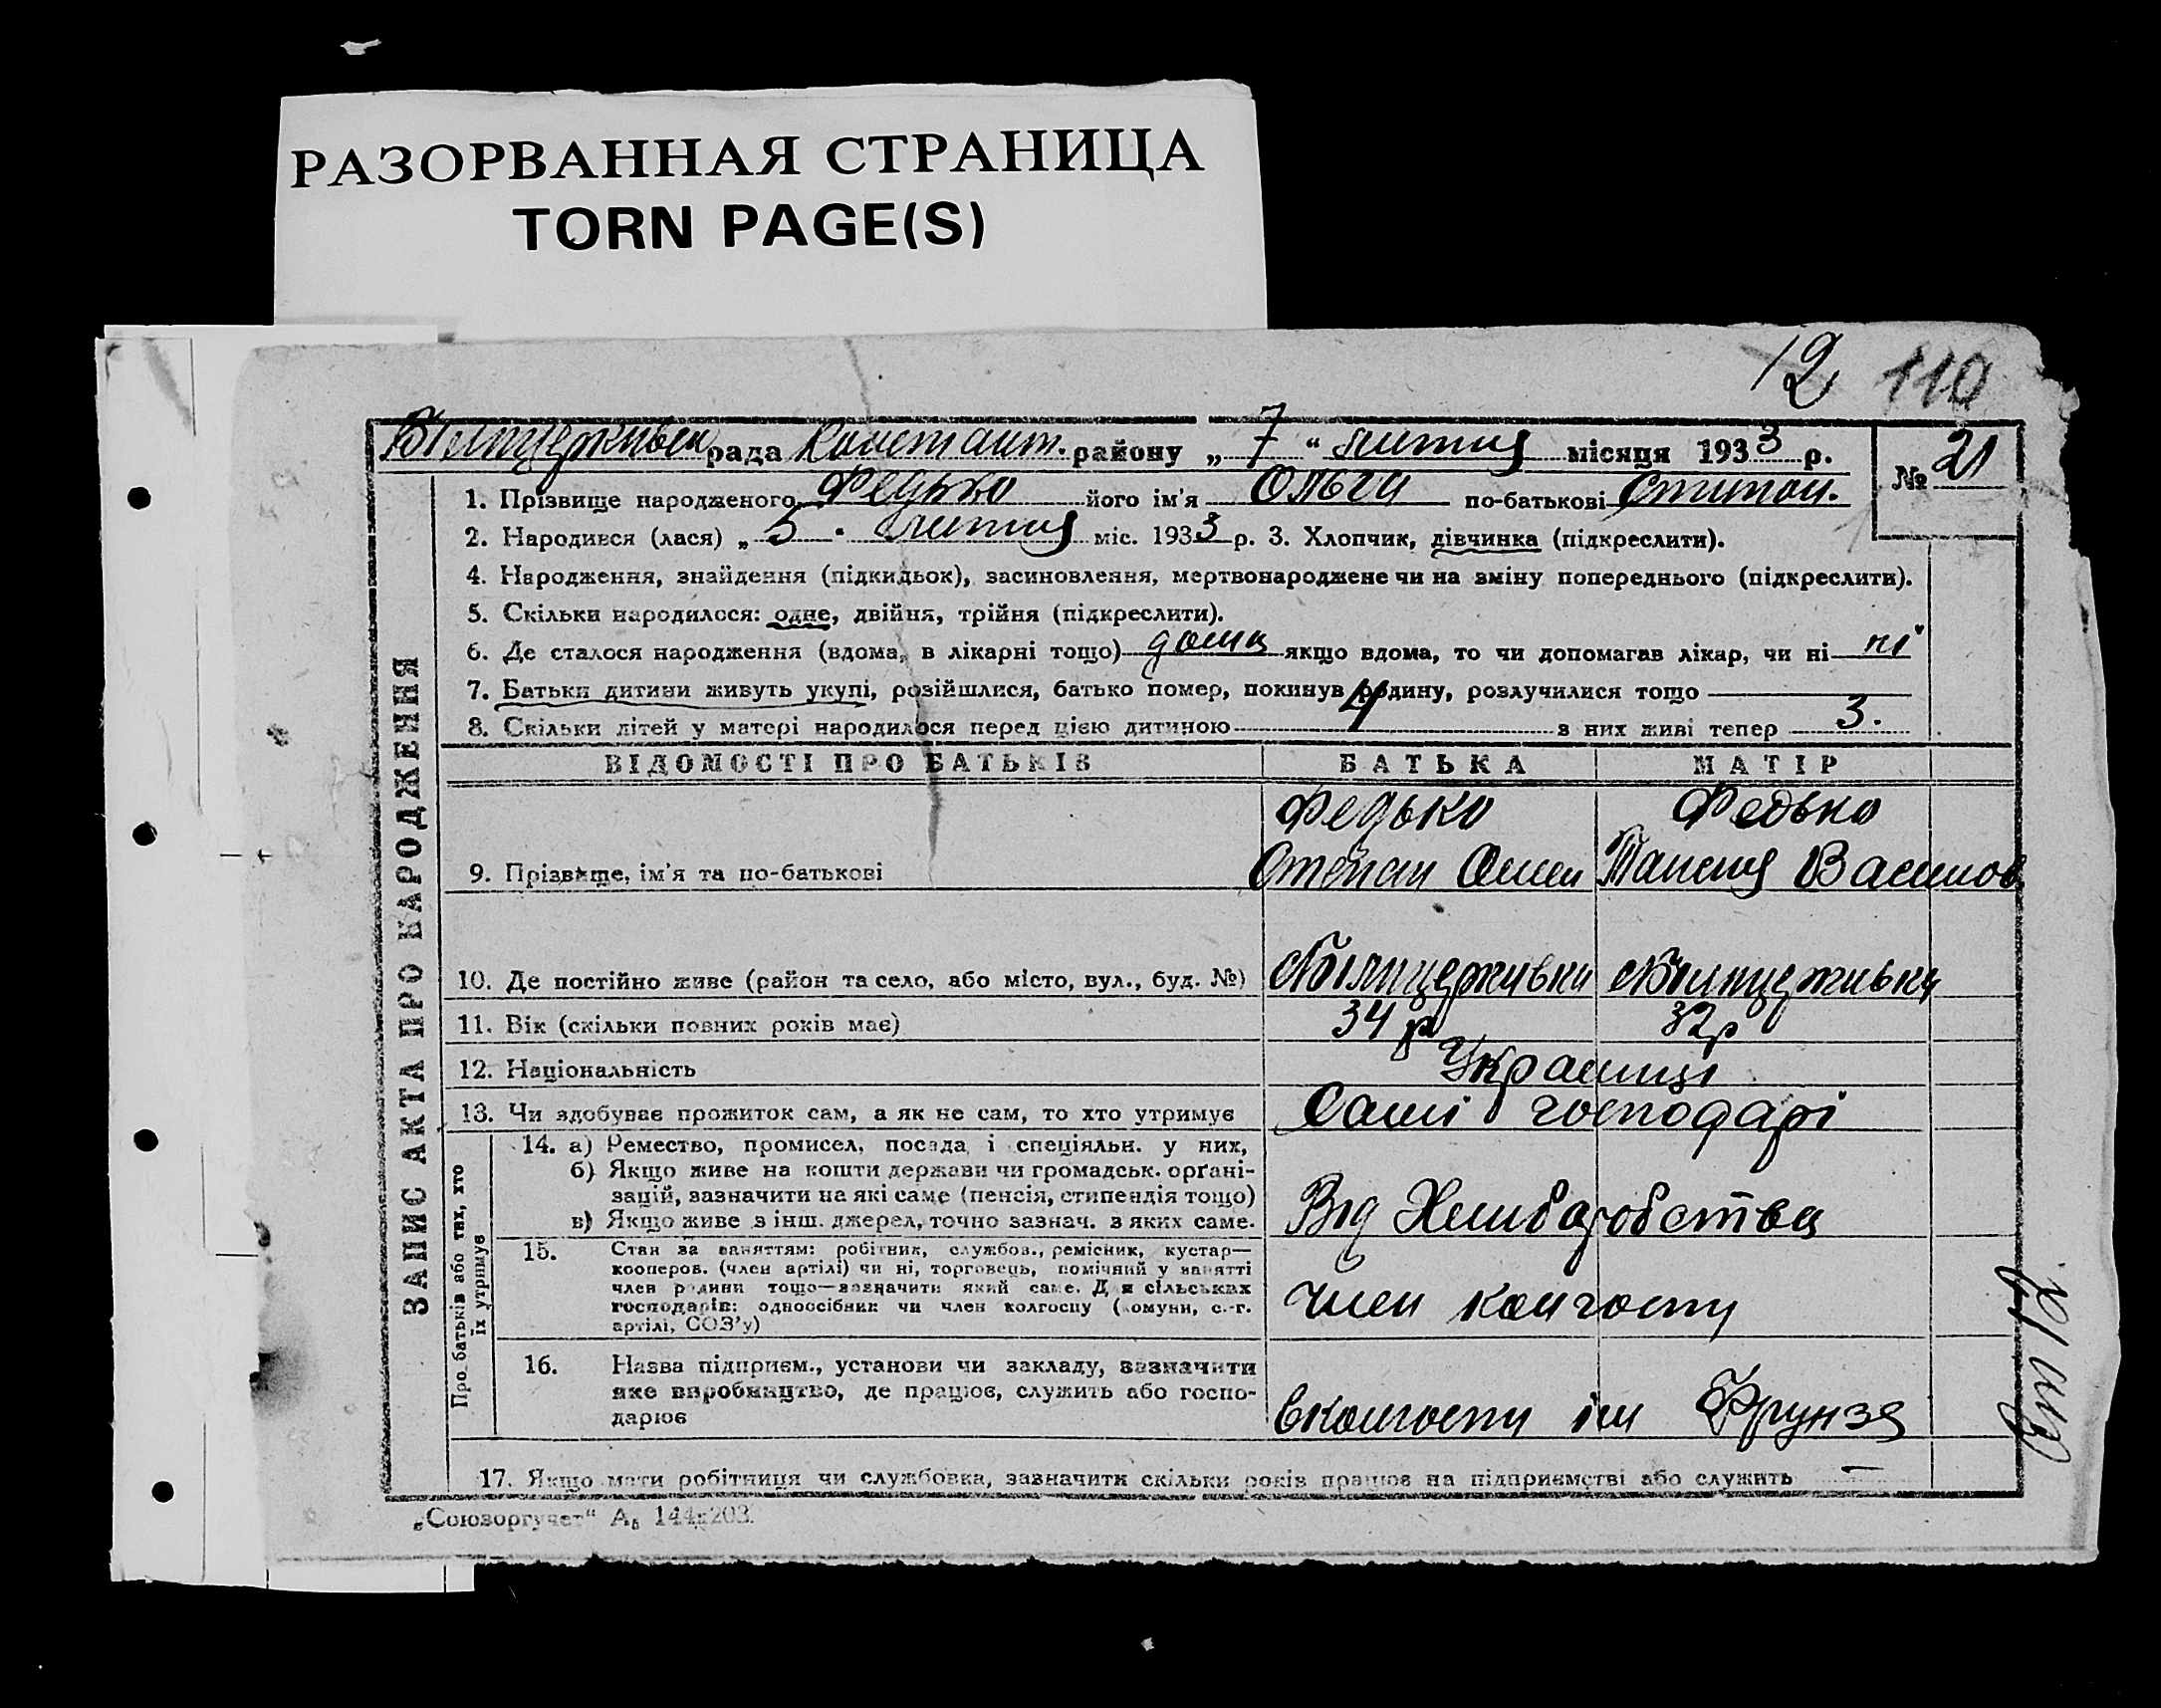 РАЗОРВАННАЯ СТРАНИЦА
TORN PAGE(S)
12 110
рада Констант. району „ 7 “ лютня місяця 1933 р.
№ 21
1. Прізвище народженого Федько його ім'я Ольга по-батькові Степан.
2. Народився (лася) „ 5 “ лютня міс. 1933 р. 3. Хлопчик, дівчинка (підкреслити).
4. Народження, знайдення (підкидьок), засиновлення, мертвонароджене чи на зміну попереднього (підкреслити).
5. Скільки народилося: одне, двійня, трійня (підкреслити).
6. Де сталося народження (вдома, в лікарні тощо) дома якщо вдома, то чи допомагав лікар, чи ні ні
7. Батьки дитини живуть укупі, розійшлися, батько помер, покинув родину, розлучилися тощо
8. Скільки дітей у матері народилося перед цією дитиною 4 з них живі тепер 3.
ЗАПИС АКТА ПРО НАРОДЖЕННЯ
ВІДОМОСТІ ПРО БАТЬКІВ БАТЬКА МАТІР
Федько Федько
9. Прізвище, ім'я та по-батькові Степан Таисия Васильов
10. Де постійно живе (район та село, або місто, вул., буд. №)
11. Вік (скільки повних років має) 34 р 32 р
12. Національність Українці
13. Чи здобуває прожиток сам, а як не сам, то хто утримує Самі господарі
Про батьків або тих, хто їх утримує
14. а) Ремество, промисел, посада і спеціяльн. у них,
б) Якщо живе на кошти держави чи громадськ. орґані-
зацій, зазначити на які саме (пенсія, стипендія тощо)
в) Якщо живе з інш. джерел, точно зазнач. з яких саме.
Від Хлиборобства
15. Стан за заняттям: робітник, службов., ремісник, кустар—
кооперов. (член артілі) чи ні, торговець, помічний у занятті
член родини тощо—зазначити який саме. Для сільських
господарів: одноосібник чи член колгоспу (комуни, с.-г.
артілі, СОЗ'у)
член колгоспу
16. Назва підприєм., установи чи закладу, зазначити
яке виробництво, де працює, служить або госпо-
дарює
вколгоспу ім Фрунзе
17. Якщо мати робітниця чи службовка, зазначити скільки років працює на підприємстві або служить —
„Союзоргучет“